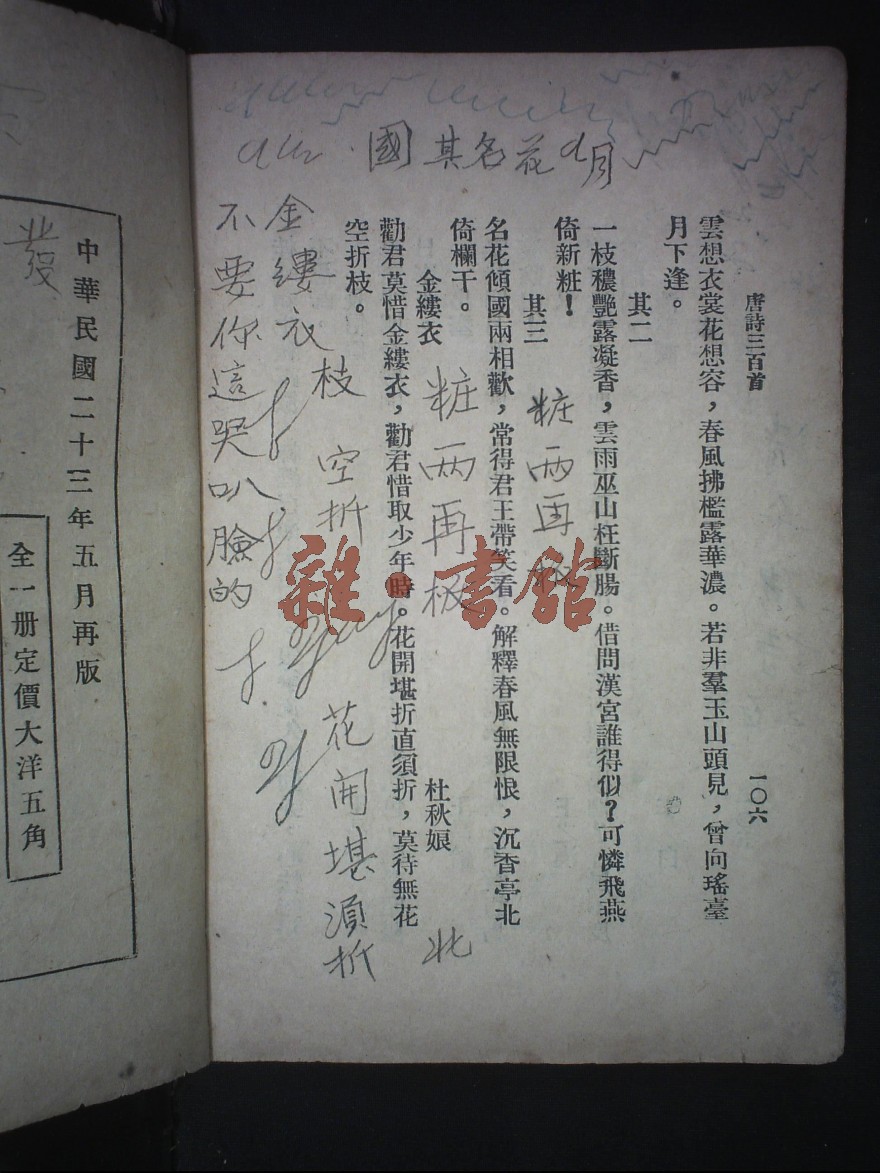 唐詩三百首
一〇六
雲想衣裳花想容，春風拂檻露華濃。若非羣玉山頭見，曾向瑤臺
月下逢。
其二
一枝穠艷露凝香，雲雨巫山枉斷腸。借問漢宮誰得似？可憐飛燕
倚新粧！
其三
名花傾國兩相歡，常得君王帶笑看。解釋春風無限恨，沉香亭北
倚欄干。
金縷衣
杜秋娘
勸君莫惜金縷衣，勸君惜取少年時。花開堪折直須折，莫待無花
空折枝。
國其名花
月
粧兩再版
粧兩再版
北
枝 空折
花開堪須折
金縷衣
不要你這哭叭臉的
雜·書館
發
中華民國二十三年五月再版
全一册定價大洋五角